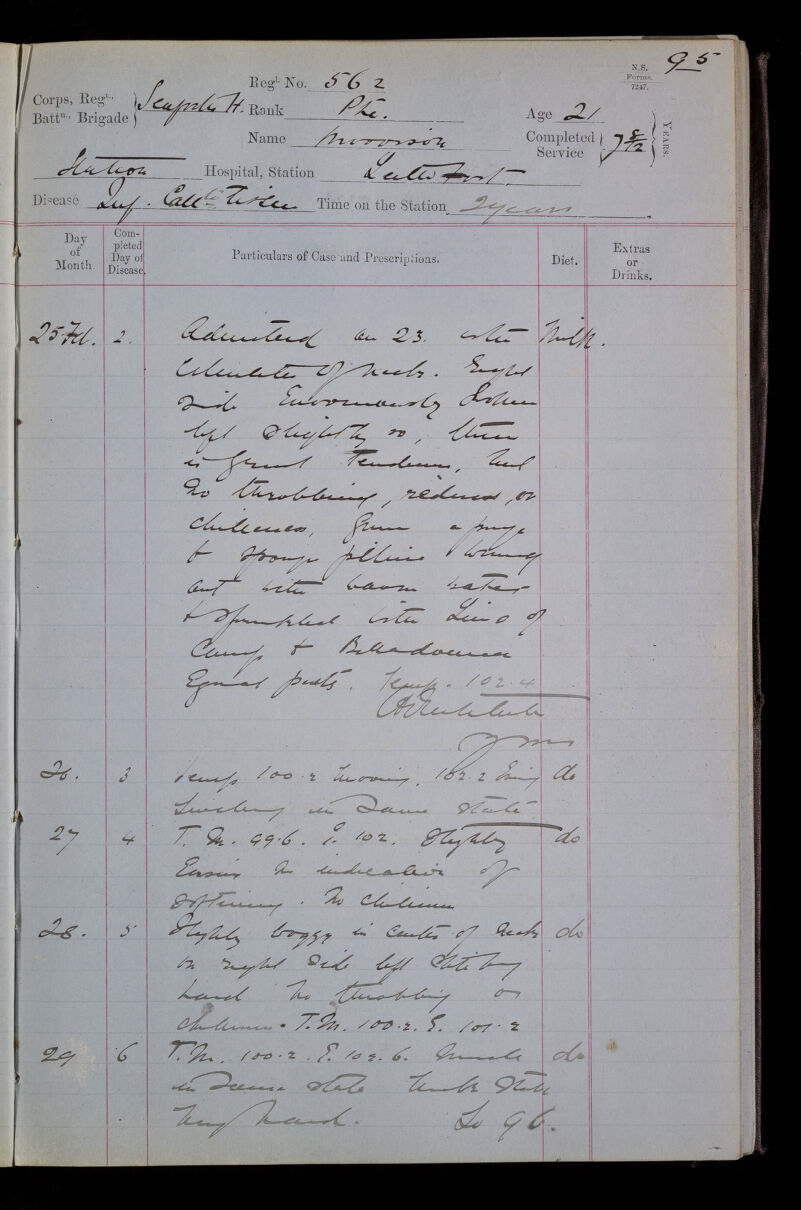 95
N.S.
Forms.
7247.
Regt. No. 562
Corps, Regt.
Battn. Brigade Seaforth H. Rank Pte. Age 21
Name Morrison Completed Service 7 8/12 YEARS.
Station Hospital, Station Leith Fort.
Disease Inf. Cell. Tissue Time on the Station 2 years
Day of Month. Completed Day of Disease. Particulars of Case and Prescriptions. Diet. Extras or Drinks.
25 Feb. 2. Admitted on 23. with Milk.
Cellulitis of neck. Right
side Enormously Swollen
left slightly so, there
is great Tenderness, but
no throbbing, redness, or
chilliness, Given a purge
& sponge piline wrung
out with warm water
& sprinkled with Lin. of
Camp & Belladonna
Equal parts. Temp. 102.4
26. 3 Temp 100.2 morning, 102.2 Eving do
Swelling in Same State
27 4 T. M. 99.6. E. 102. Slightly do
Easier no indication of
softening. No chilliness
28. 5 Slightly boggy in centre of neck do
on right side left still very
hard no throbbing or
chilliness. T.M. 100.2. E. 101.2
29 6 T.M. 100.2. E. 102.6. Much do
in Same state neck still
very hard. To 96.